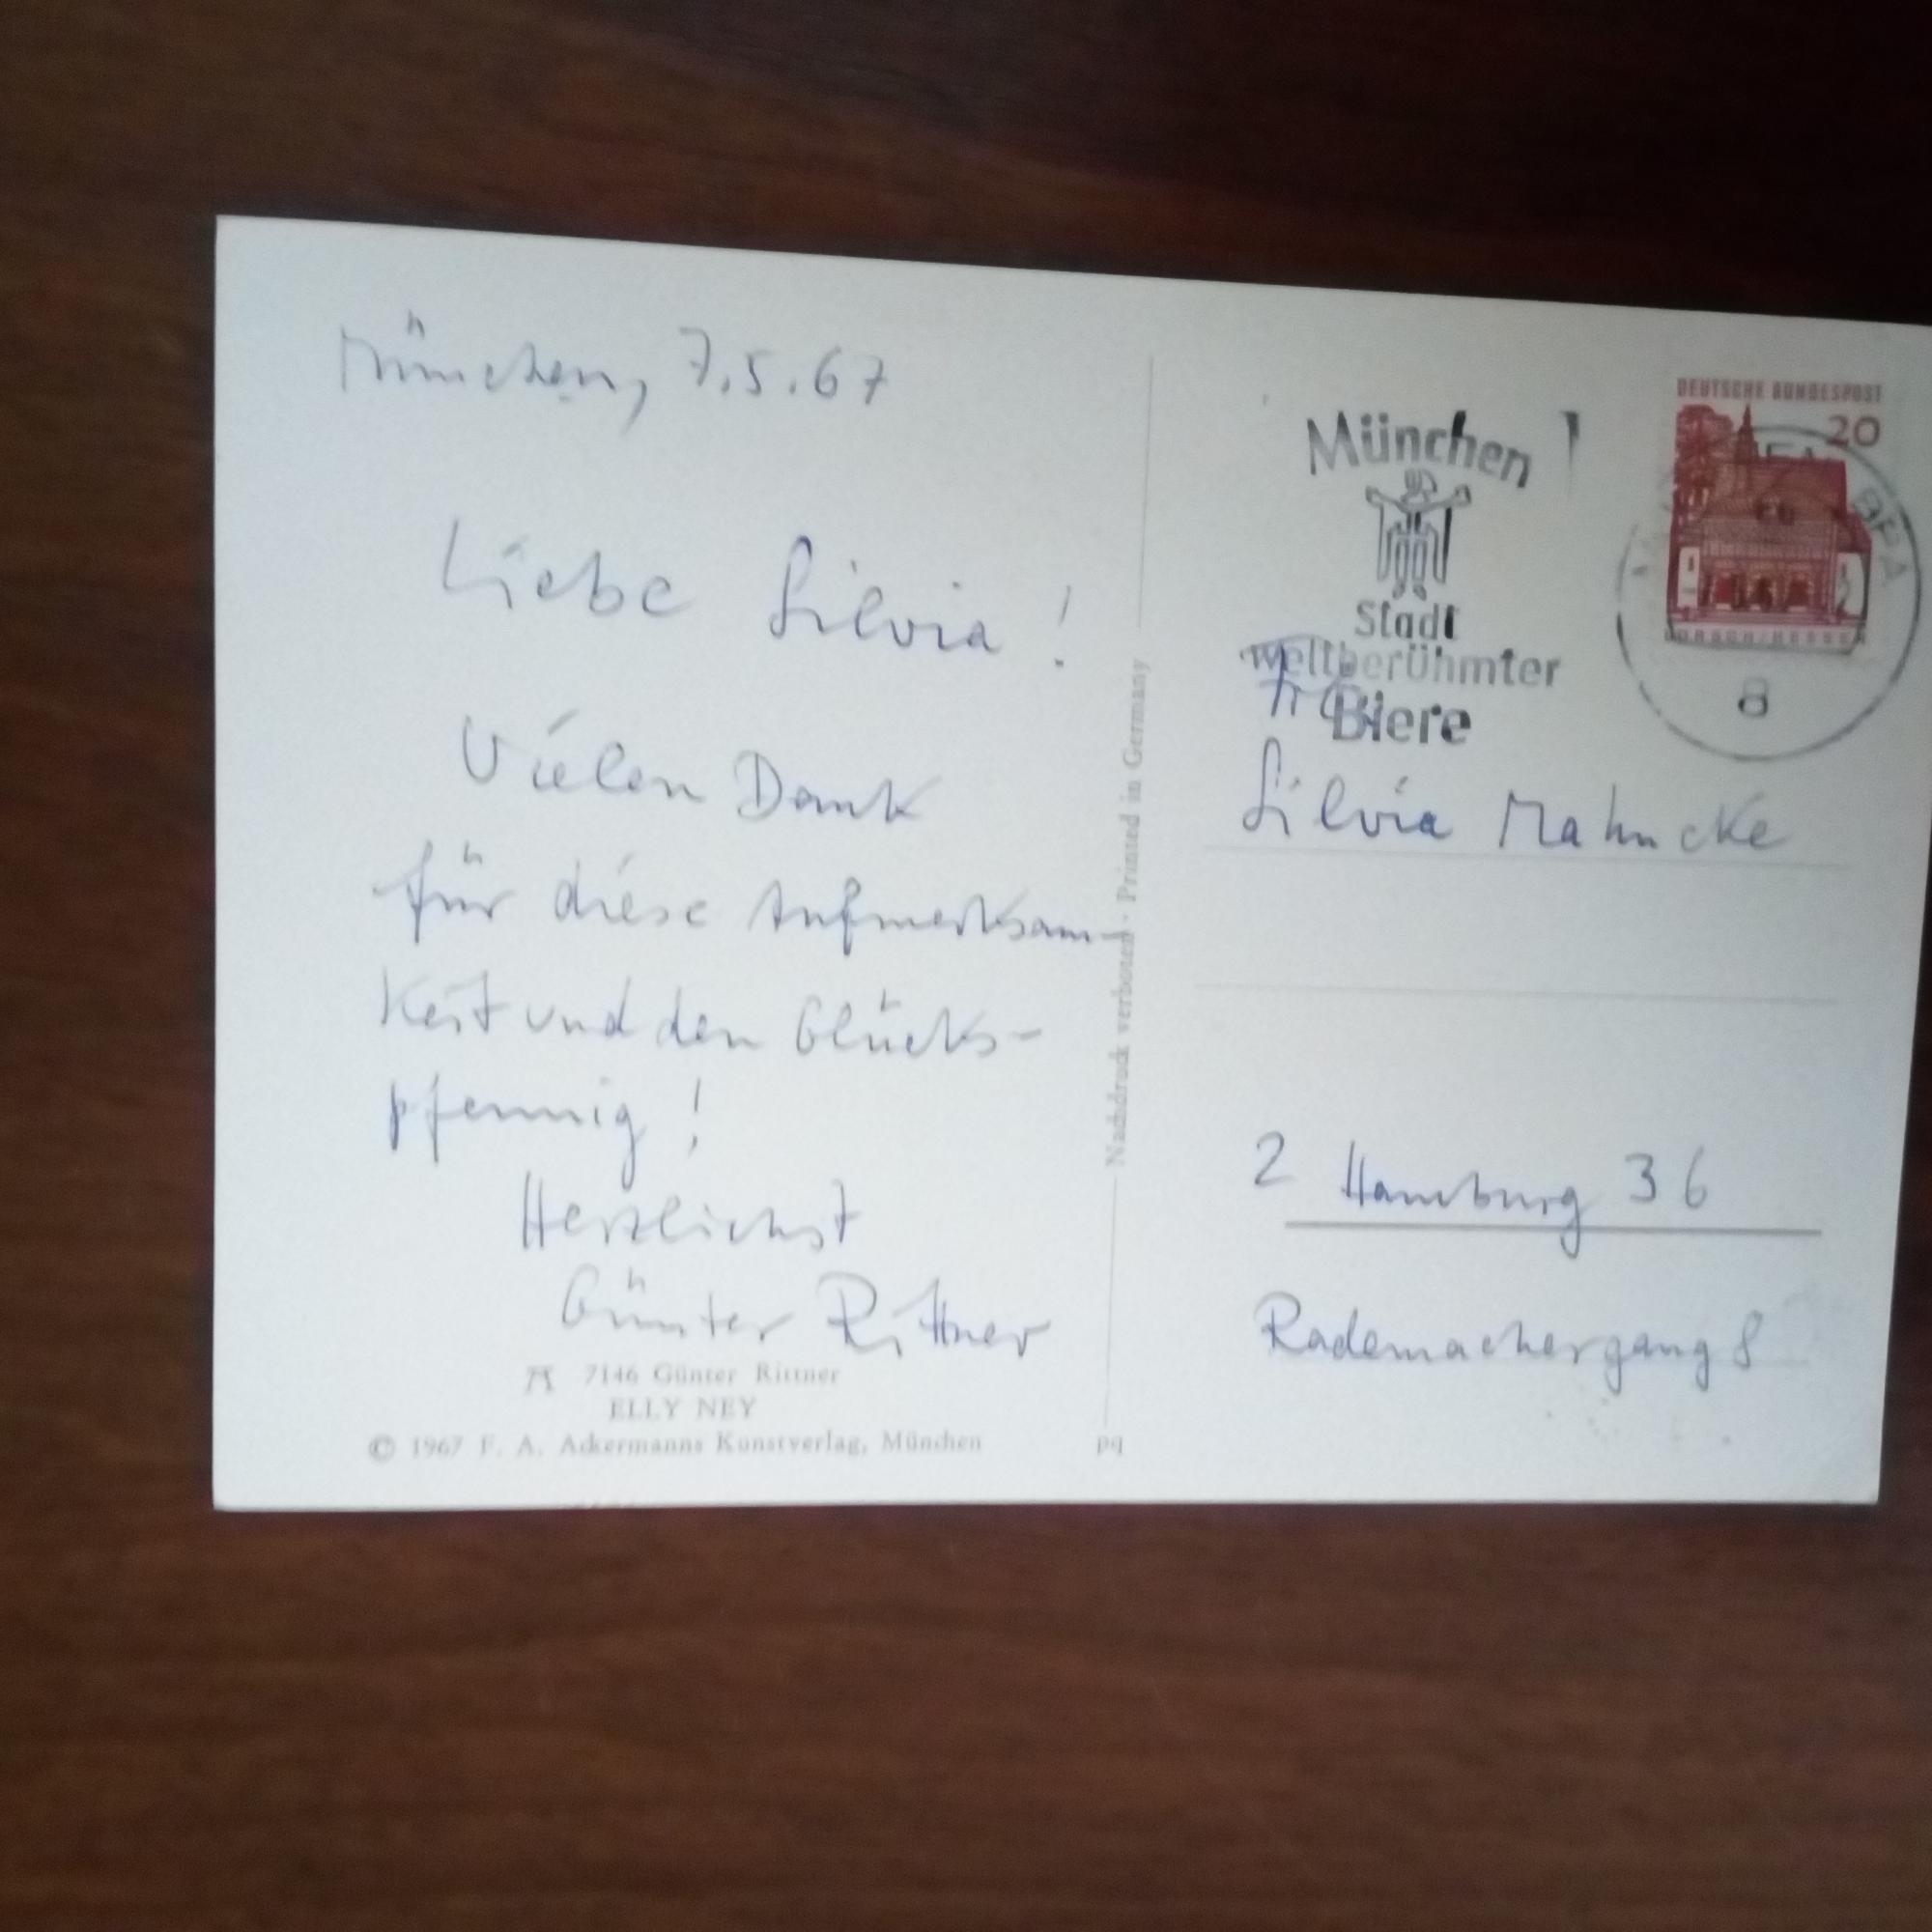 München, 7.5.67
Liebe Silvia!
Vielen Dank
für diese Aufmerksam-
keit und den Glücks-
pfennig!
Herzlichst
Günter Rittner
7146 Günter Rittner
ELLY NEY
© 1967 F. A. Ackermanns Kunstverlag, München
pq
Nachdruck verboten · Printed in Germany
München
Stadt
weltberühmter
Biere
DEUTSCHE BUNDESPOST
20
LORSCH/HESSEN
8
Silvia Mahncke
2 Hamburg 36
Rademachergang 8